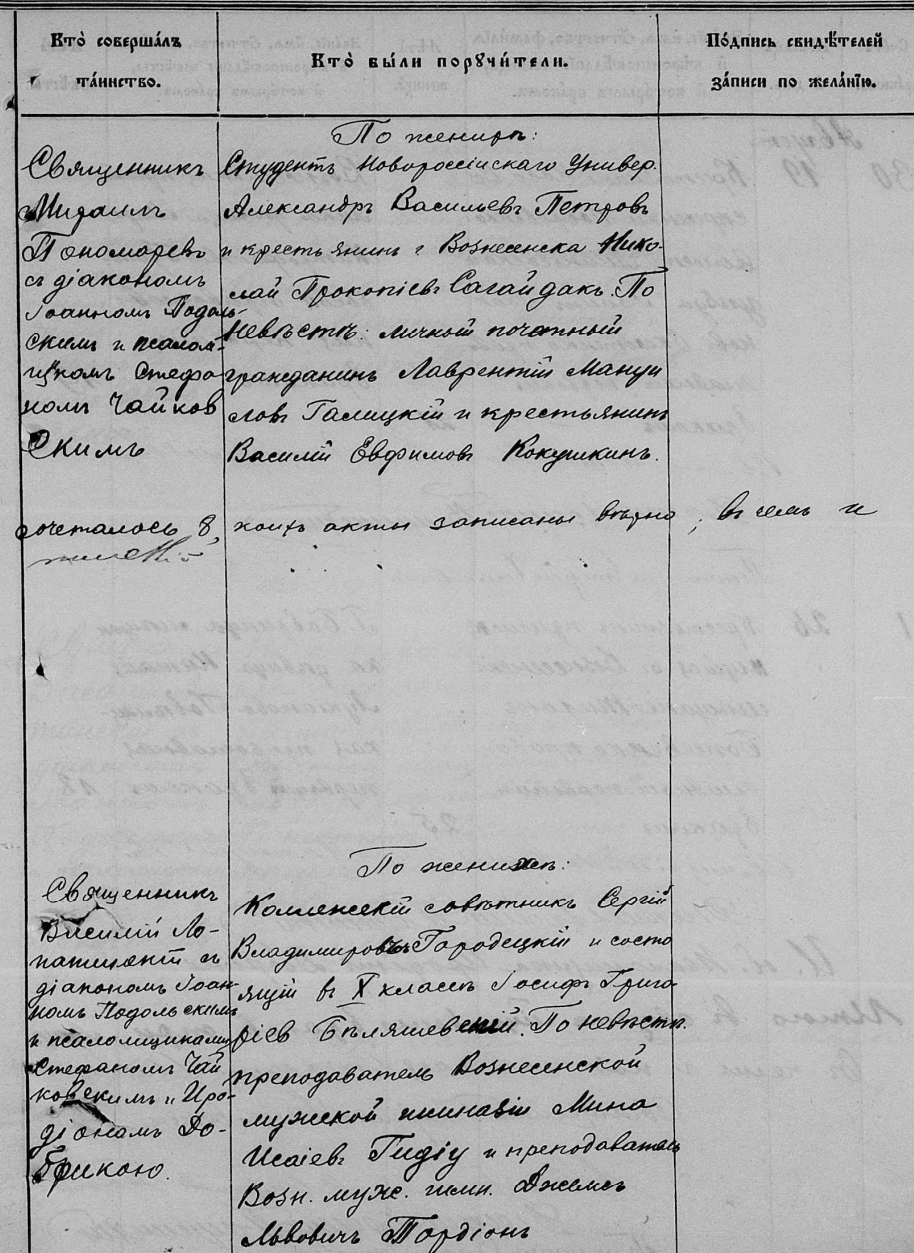 Кто̀ соверша́лъ
та́инство.
Кто̀ бы́ли порꙋчи́тели.
По́дпись свидѣ́телей
за́писи по жела́нїю.
По женихѣ:
Священникъ
Михаилъ
Пономаревъ
съ діакономъ
Іоанномъ Подоль-
скимъ и псалом-
щикомъ Стефа
номъ Чайков
скимъ
Студентъ Новороссійскаго Универ.
Александръ Васильевъ Петровъ
и крестьянинъ г. Вознесенска Нико-
лай Прокопіевъ Сагайдакъ. По
невѣстѣ: личной почетный
гражданинъ Лаврентій Мануи
ловъ Галицкій и крестьянинъ
Василій Евфимовъ Кокушкинъ.
сочеталось 8, коихъ акты записаны вѣрно, въ чемъ и
По женихѣ:
Священникъ
Василій Ло-
патинскій съ
діакономъ Іоан
номъ Подольскимъ
и псаломщиками
Стефаномъ Чай
ковскимъ и Иро-
діономъ До-
брикою.
Коллежскій совѣтникъ Сергій
Владимировъ Городецкій и состо
ящій въ X классѣ Іосифъ Григо
ріевъ Бѣляшевскій. По невѣстѣ.
преподаватель Вознесенской
мужской гимназіи Мина
Исаіевъ Гидіу и преподаватель
Возн. муж. гимн. Джемсъ
Львовичъ Тордіонъ